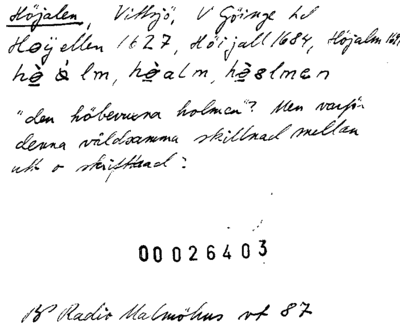 Höjalen, Vittsjö, V Göinge hd
Høÿellen 1627, Höijall 1684, Höjalm
hè lm, hèalm, hèəlmən
"den höbevuxna holmen"? Men varför
denna våldsamma skillnad mellan
utt o skriftbild?
00026403
BP Radio Malmöhus vt 87